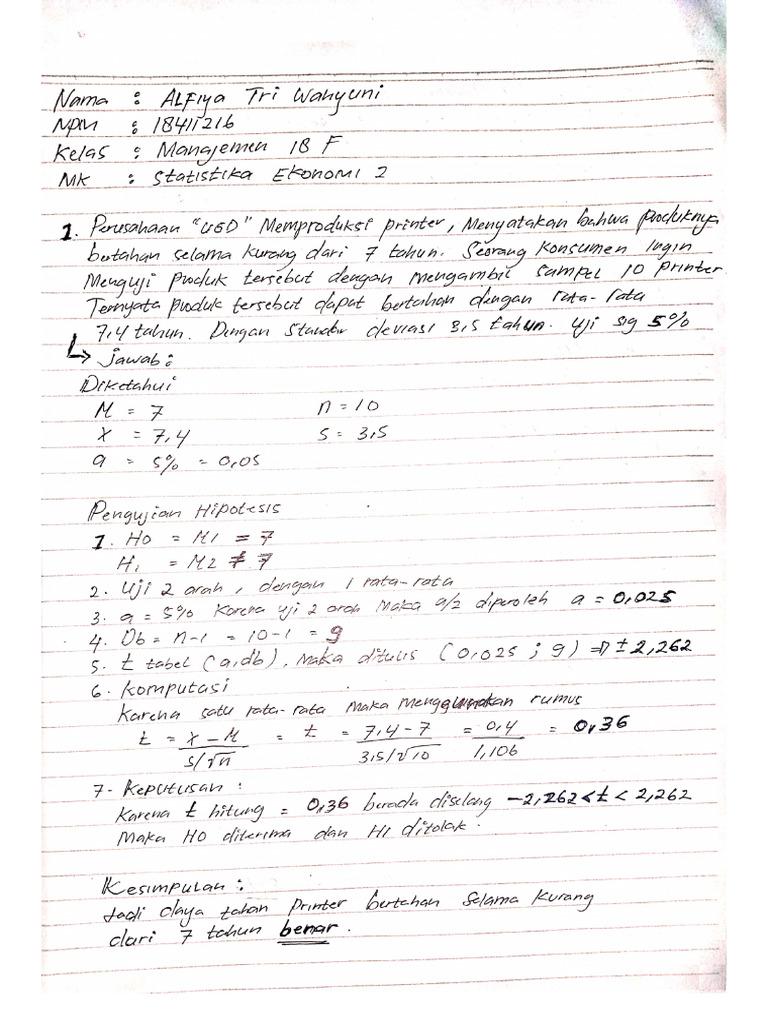 Nama : ALFIya Tri Wahyuni
NPM : 18411216
Kelas : Manajemen 18 F
MK : Statistika Ekonomi 2
1. Perusahaan "UGD" Memproduksi printer, Menyatakan bahwa produknya
bertahan selama kurang dari 7 tahun. Seorang Konsumen Ingin
Menguji produk tersebut dengan mengambil sampel 10 printer
Ternyata produk tersebut dapat bertahan dengan rata-rata
7,4 tahun. Dengan Standar deviasi 3,5 tahun. Uji sig 5%
↳ Jawab :
Diketahui
M = 7 n = 10
X = 7,4 S = 3,5
a = 5% = 0,05
Pengujian Hipotesis
1. H0 = M1 = 7
H1 = M2 ≠ 7
2. Uji 2 arah, dengan 1 rata-rata
3. a = 5% Karena uji 2 arah Maka a/2 diperoleh a = 0,025
4. Db = n-1 = 10-1 = 9
5. t tabel (a,db), Maka ditulis (0,025 ; 9) => ± 2,262
6. Komputasi
Karena satu rata-rata Maka menggunakan rumus
t = X - M / S/√n = t = 7,4 - 7 / 3,5/√10 = 0,4 / 1,106 = 0,36
7. Keputusan :
Karena t hitung = 0,36 berada diselang -2,262 < t < 2,262
Maka H0 diterima dan H1 ditolak.
Kesimpulan :
Jadi daya tahan Printer bertahan selama Kurang
dari 7 tahun benar.